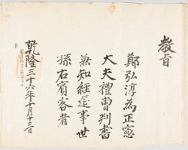 教旨
鄭弘淳為正憲
大夫禮曹判書
兼知經筵事世
孫右賓客者
乾隆三十六年十月十三日